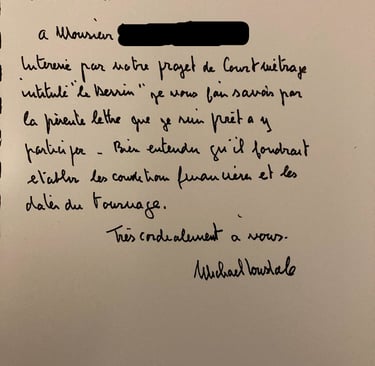 a Monsieur
Interessé par votre projet de Court métrage
intitulé "le Dessin" je vous fais savoir par
la présente lettre que je suis prêt a y
participer - Bien entendu qu'il faudrait
etablir les condition financières et les
dates du tournage.
Très cordialement à vous.
Michael